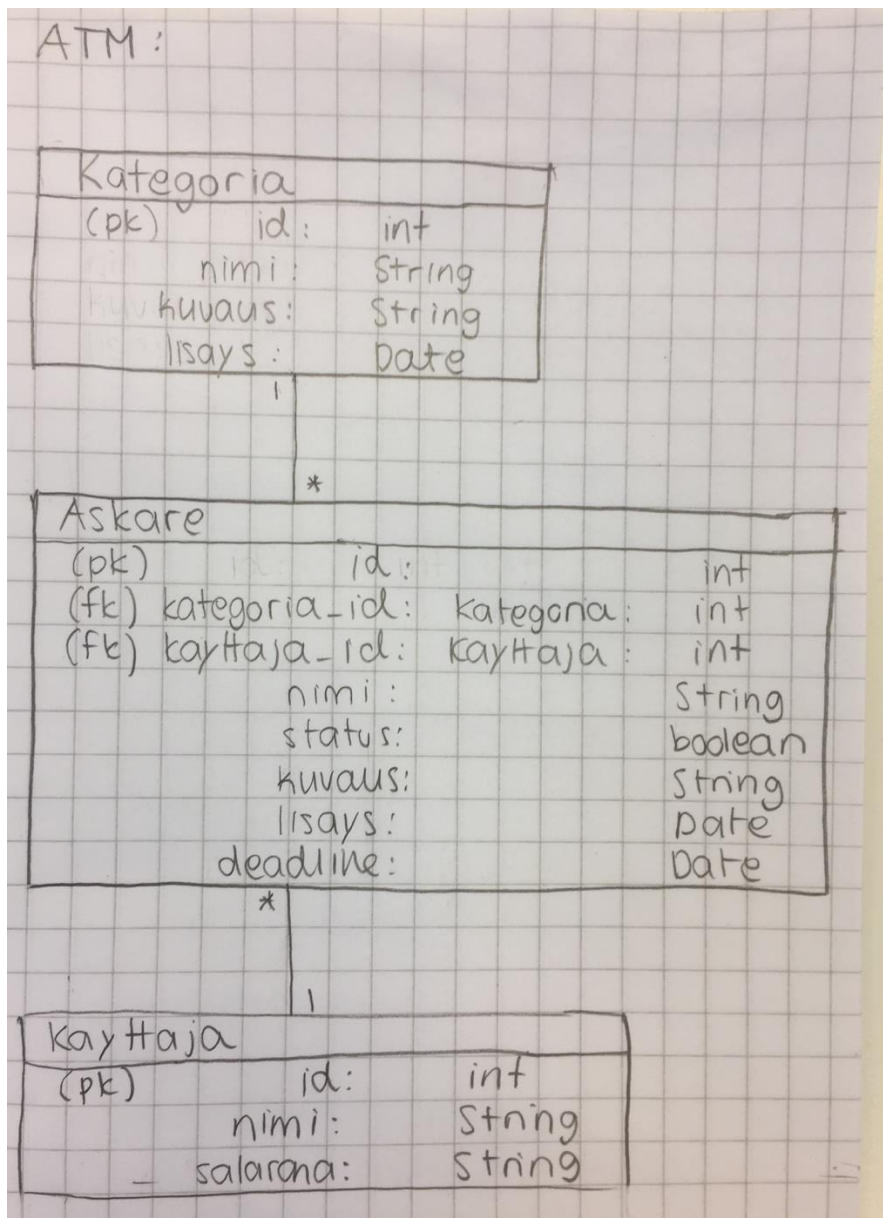 ATM:
Kategoria
(pk) id: int
nimi: String
kuvaus: String
lisays: Date
1
*
Askare
(pk) id: int
(fk) kategoria_id: kategoria: int
(fk) kayttaja_id: kayttaja: int
nimi: String
status: boolean
kuvaus: String
lisays: Date
deadline: Date
*
1
kayttaja
(pk) id: int
nimi: String
salarana: String